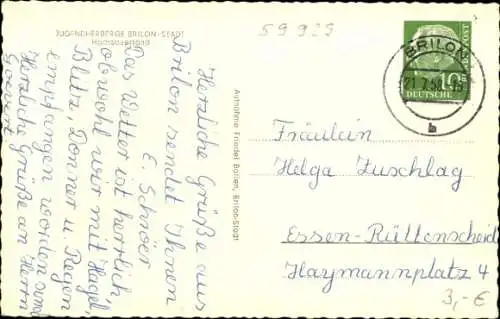 59929
JUGENDHERBERGE BRILON-STADT
Herzliche Grüße aus
Brilon sendet Ihnen
E. Schröer
Das Wetter ist herrlich,
obwohl wir mit Hagel,
Blitz, Donner u. Regen
empfangen worden sind
Herzliche Grüße an Herrn
Aufnahme Friedel Bollen, Brilon-Stadt
BRILON
21.7.58
b
10
DEUTSCHE
BUNDESPOST
Fräulein
Helga Zuschlag
Essen-Rüttenscheid
Haymannplatz 4
3,- €